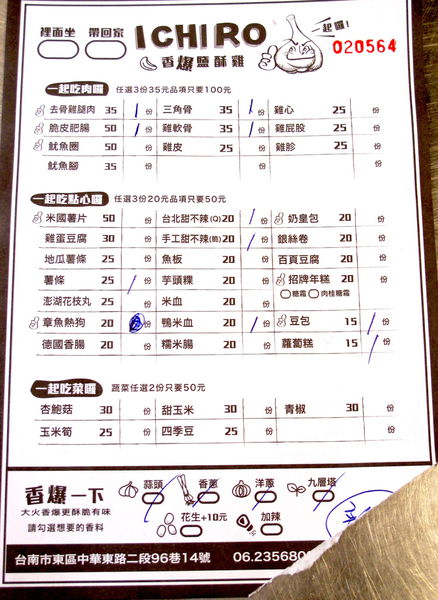 裡面坐 帶回家 ICHIRO 一起囉!
香爆鹽酥雞 020564
一起吃肉囉 任選3份35元品項只要100元
去骨雞腿肉 35 / 份 三角骨 35 / 份 雞心 25 份
脆皮肥腸 50 / 份 雞軟骨 35 / 份 雞屁股 25 份
魷魚圈 50 份 雞皮 25 份 雞胗 25 份
魷魚腳 35 份
一起吃點心囉 任選3份20元品項只要50元
米國薯片 50 份 台北甜不辣(Q) 20 / 份 奶皇包 20 份
雞蛋豆腐 30 份 手工甜不辣(脆) 20 / 份 銀絲卷 20 份
地瓜薯條 25 份 魚板 20 份 百頁豆腐 20 份
薯條 25 / 份 芋頭粿 20 份 招牌年糕 20 份
糖霜 肉桂糖霜
澎湖花枝丸 25 份 米血 20 份
章魚熱狗 20 份 鴨米血 20 / 份 豆包 15 / 份
德國香腸 20 份 糯米腸 20 份 蘿蔔糕 15 / 份
一起吃菜囉 蔬菜任選2份只要50元
杏鮑菇 30 份 甜玉米 30 份 青椒 30 份
玉米筍 25 份 四季豆 25 份
香爆一下 蒜頭 香蔥 洋蔥 九層塔
大火香爆更酥脆有味
請勾選想要的香料 花生+10元 加辣
台南市東區中華東路二段96巷14號 06.235680